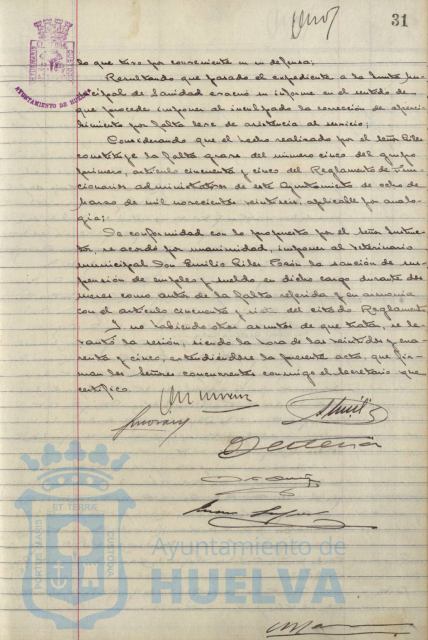 31
AYUNTAMIENTO DE HUELVA
lo que tuvo por conveniente en su defensa;
Resultando que pasado el expediente a la Junta Mu-
nicipal de Sanidad evacuó su informe en el sentido de
que procede imponer al inculpado la corrección de aperci-
bimiento por falta leve de asistencia al servicio;
Considerando que el hecho realizado por el Señor Giles
constituye la falta grave del número cinco del grupo
primero, artículo cincuenta y cinco del Reglamento de Fun-
cionarios administrativos de este Ayuntamiento de ocho de
Marzo de mil novecientos veintiseis, aplicable por analo-
gía;
De conformidad con lo propuesto por el Señor Instruc-
tor, se acordó por unanimidad, imponer al Veterinario
municipal Don Emilio Giles la sanción de sus-
pensión de empleo y sueldo en dicho cargo durante dos
meses como autor de la falta referida y en armonía
con el artículo cincuenta y siete del citado Reglamento.
Y no habiendo otros asuntos de que tratar, se le-
vantó la sesión, siendo la hora de las veintidós y cua-
renta y cinco, extendiéndose la presente acta, que fir-
man los Señores concurrentes conmigo el Secretario que
certifico.
ET TERRÆ
PORTUS MARIS
CUSTODIA
Ayuntamiento de
HUELVA